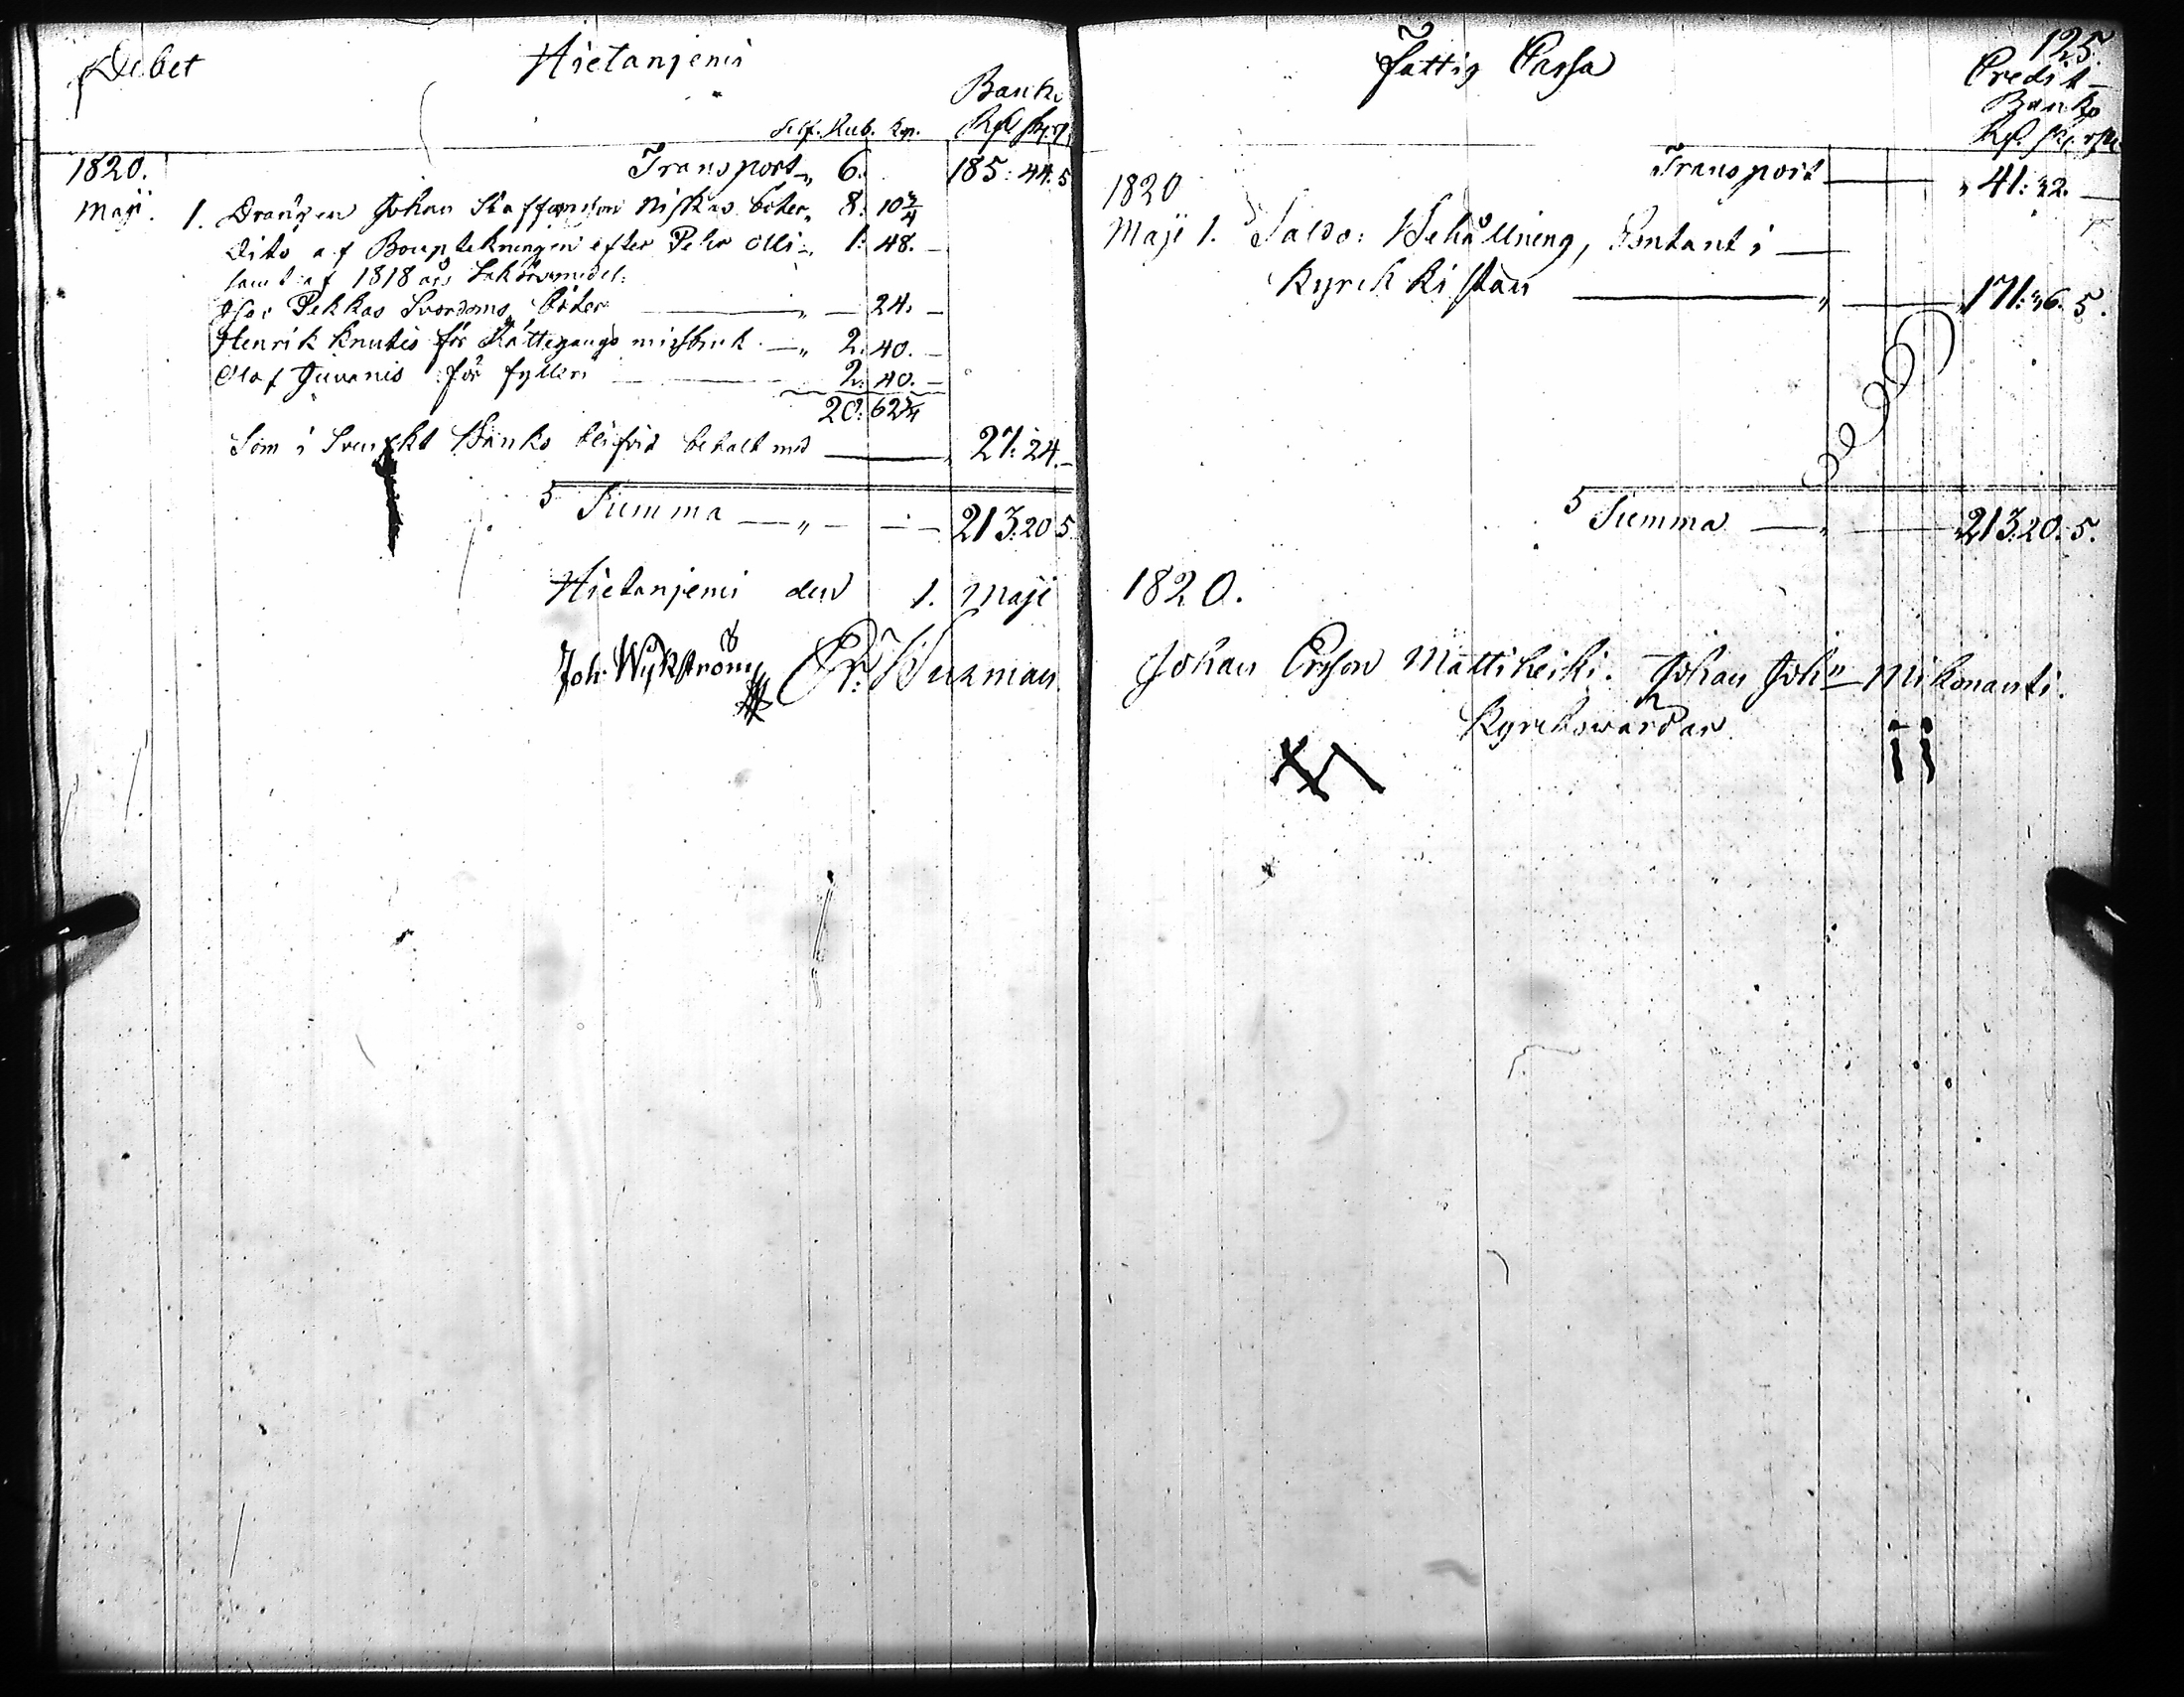 Debet Hietaniemi
Banko
Silf. Rub. Kop. Rd. sk. rst.
1820. Transport „ 6. 185: 44. 5
Maji. 1. Drängen Johan Staffansson Niskas böter „ 8: 10 3/4
Dito af Bouptekningen efter Pehr Olli „ 1: 48. –
samt af 1818 års Saköresmedel:
Pekkas Svordoms böter — „ — 24. –
Henrik Knutis för Rättegångs missbruk — „ 2: 40. –
Olof Juvanis för fylleri — 2: 40. –
20: 62 3/4
Som i Svenskt Banko blifvit betalt med — 27: 24. –
Summa — „ — 213: 20 5
Hietaniemi den 1. Maji
Joh: Wykström
125.
Fattig Cassa Credit
Banko
Rd. sk. rst.
Transport — „ 41: 32. —
1820
Maji 1. Saldo: Behållning, Contant i —
Kyrck kistan — „ — 171: 36. 5.
Summa — „ — 213: 20. 5.
1820.
Johan Ersson Mattiheiki. Johan Joh:n Mikonanti.
Kyrckowärdar